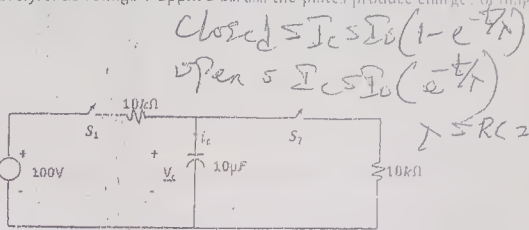 Closed = Ic = I0(1 - e^-t/λ)
open = Ic = I0(e^-t/λ)
λ = RC =
10kΩ
S1
ic
S2
+
100V
-
+
Vc
-
10μF
10kΩ